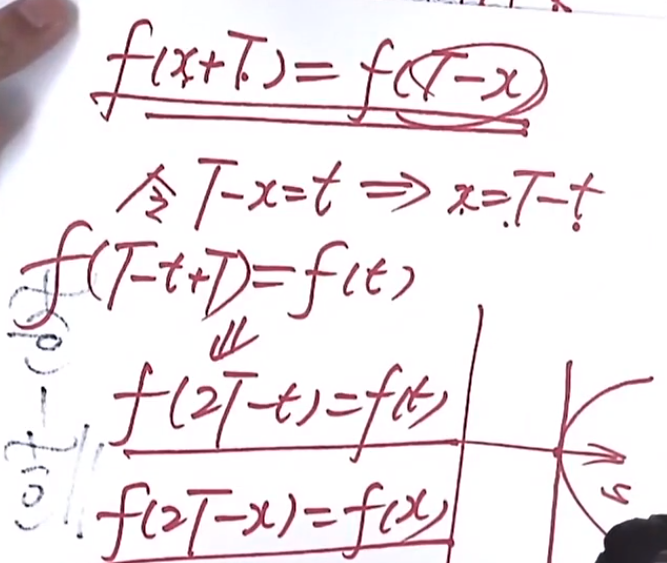 f(x+T)=f(T-x)
令 T-x=t ⇒ x=T-t
f(T-t+T)=f(t)
⇓
f(2T-t)=f(t)
f(2T-x)=f(x)